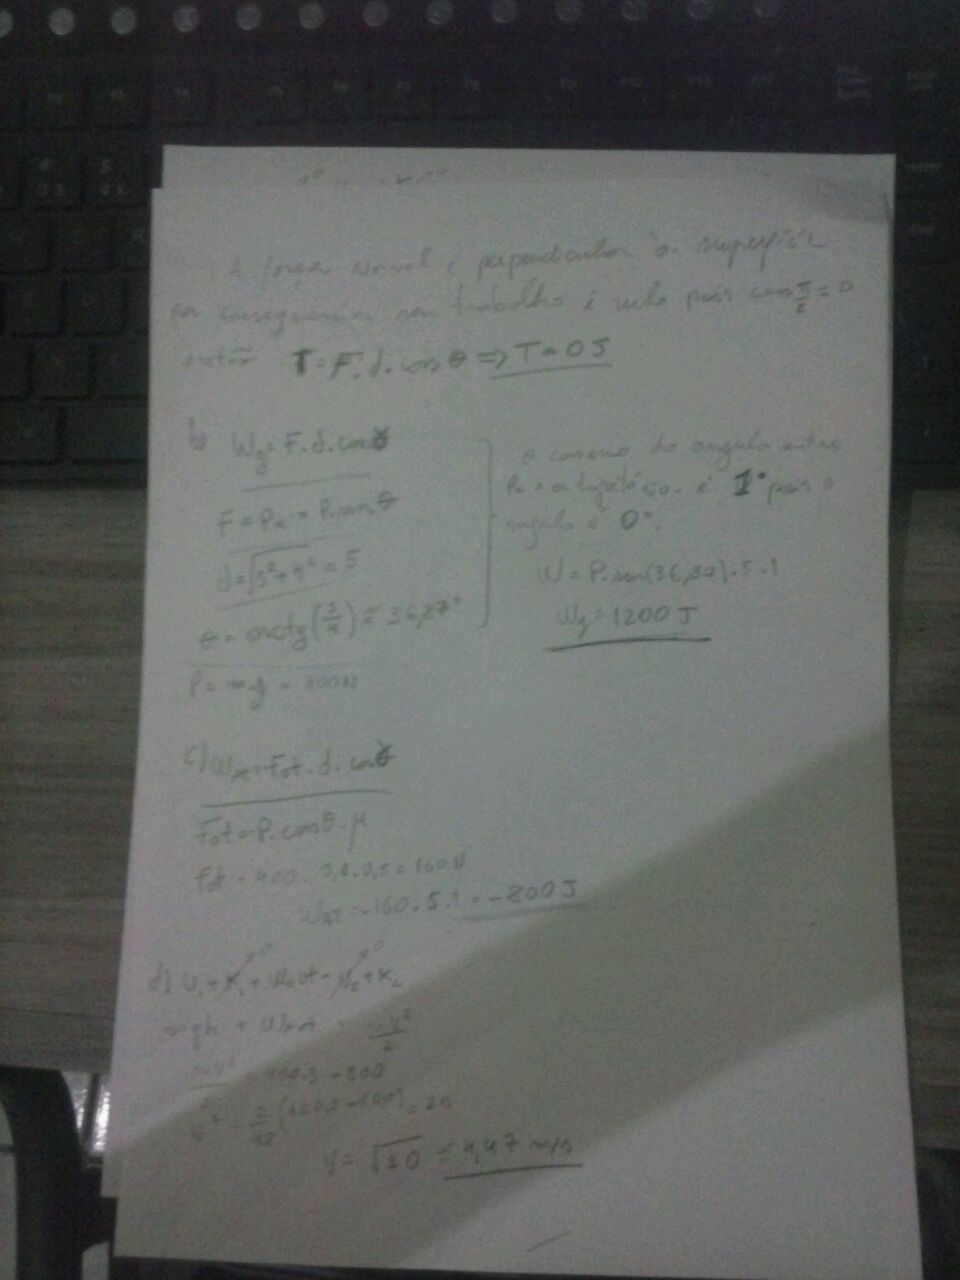 A força Normal é perpendicular à superfície
por consequência seu trabalho é nulo pois cos π/2 = 0
então T = F.d.cos θ => T = 0 J
b) Wg = F.d.cos γ
F = Px = P.sen θ
d = √3²+4² = 5
θ = arctg(3/4) ≅ 36,87°
P = m.g = 400N
O cosseno do angulo entre
Px e a trajetória é 1 pois o
angulo é 0°.
W = P.sen(36,87).5.1
Wg = 1200 J
c) Wat = Fat.d.cos γ
Fat = P.cosθ.μ
Fat = 400.0,8.0,5 = 160N
Wat = -160.5.1 = -800 J
d) U₁ + K₁ + Wat = U₂ + K₂
mgh + Wat = mv²/2
mv²/2 = 400.3 - 800
v² = 2/40 (1200 - 800) = 20
V = √20 ≅ 4,47 m/s